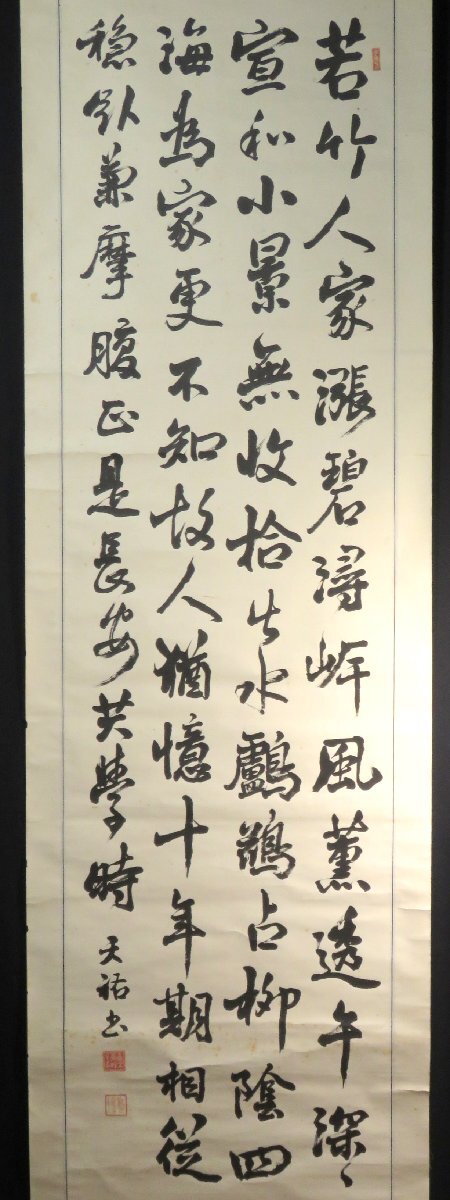 若竹人家漲碧潯岸風薰透午深〻
宣和小景無收拾出水鸕鶿占柳陰四
海為家更不知故人猶憶十年期相従
穏臥兼摩腹正是長安共學時 天祐書